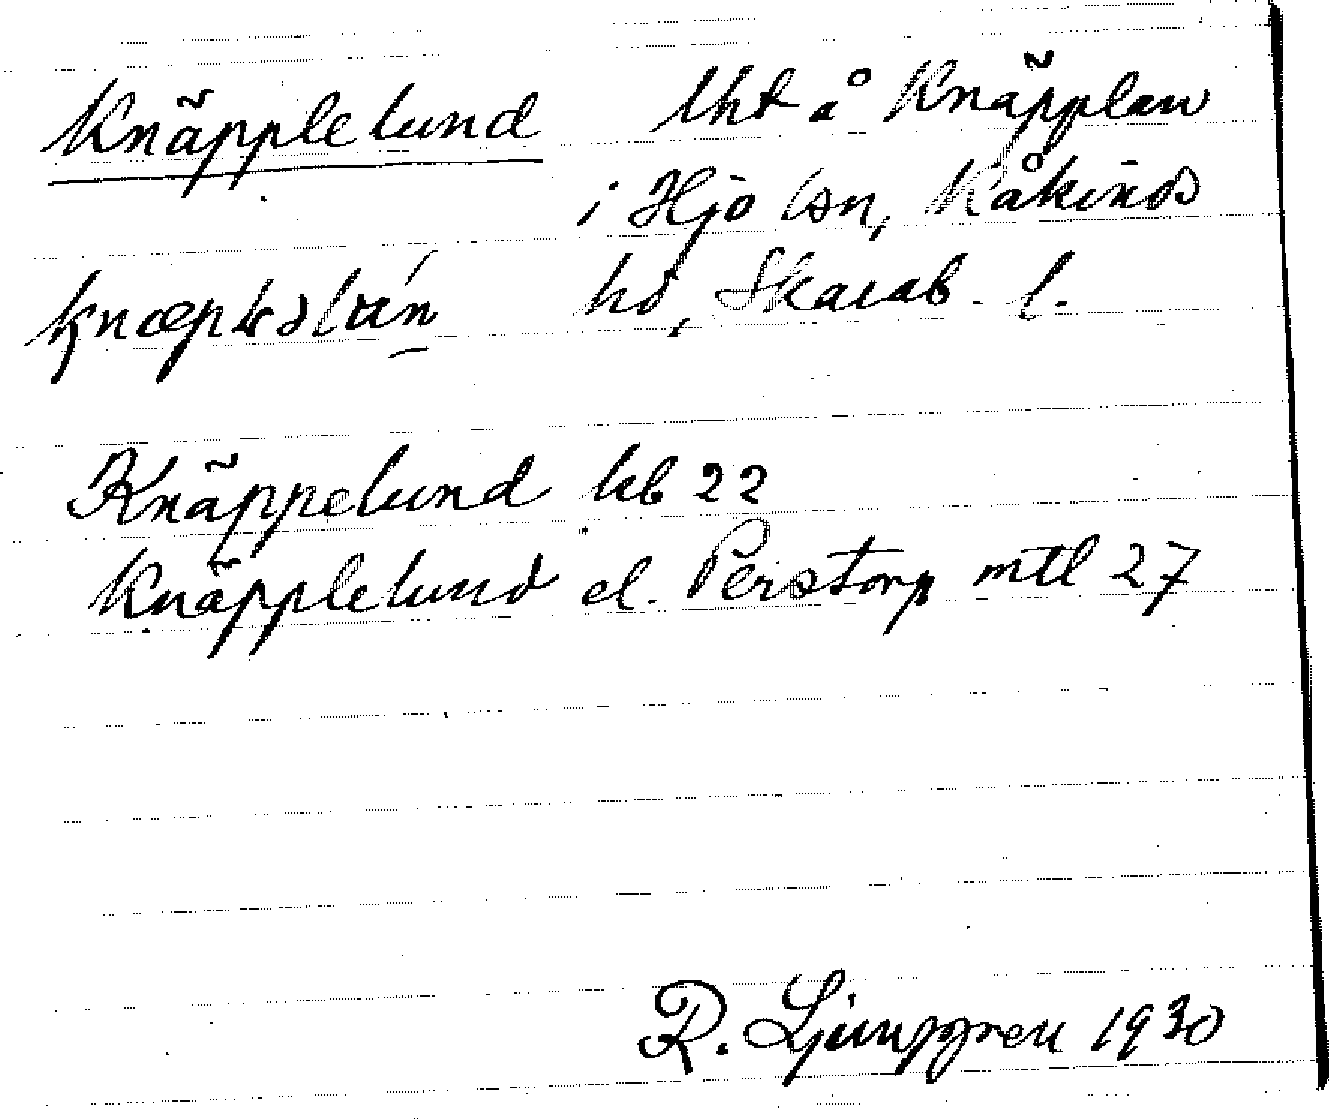 Knäpplelund lht å Knäpplan
i Hjo lsn, Kåkinds
hd, Skarab. l.
Knäppelund kb 22
Knäpplelund el. Perstorp mtl 27
R. Ljunggren 1930